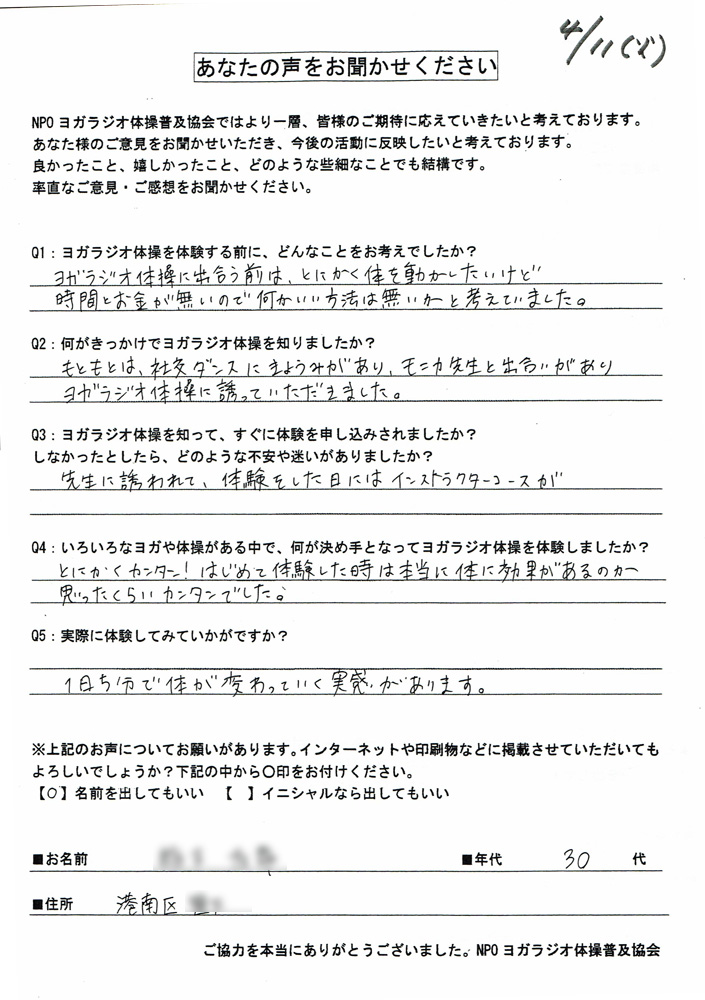 4/11(火)
あなたの声をお聞かせください
NPOヨガラジオ体操普及協会ではより一層、皆様のご期待に応えていきたいと考えております。
あなた様のご意見をお聞かせいただき、今後の活動に反映したいと考えております。
良かったこと、嬉しかったこと、どのような些細なことでも結構です。
率直なご意見・ご感想をお聞かせください。
Q1：ヨガラジオ体操を体験する前に、どんなことをお考えでしたか？
ヨガラジオ体操に出合う前は、とにかく体を動かしたいけど
時間とお金が無いので何かいい方法は無いかと考えていました。
Q2：何がきっかけでヨガラジオ体操を知りましたか？
もともとは、社交ダンスにきょうみがあり、モニカ先生と出合いがあり
ヨガラジオ体操に誘っていただきました。
Q3：ヨガラジオ体操を知って、すぐに体験を申し込みされましたか？
しなかったとしたら、どのような不安や迷いがありましたか？
先生に誘われて、体験をした日にはインストラクターコースが
Q4：いろいろなヨガや体操がある中で、何が決め手となってヨガラジオ体操を体験しましたか？
とにかくカンタン！はじめて体験した時は本当に体に効果があるのか
思ったくらいカンタンでした。
Q5：実際に体験してみていかがですか？
1日5分で体が変わっていく実感があります。
※上記のお声についてお願いがあります。インターネットや印刷物などに掲載させていただいても
よろしいでしょうか？下記の中から〇印をお付けください。
【〇】名前を出してもいい　【　】イニシャルなら出してもいい
■お名前　■年代　30　代
■住所　港南区
ご協力を本当にありがとうございました。NPOヨガラジオ体操普及協会